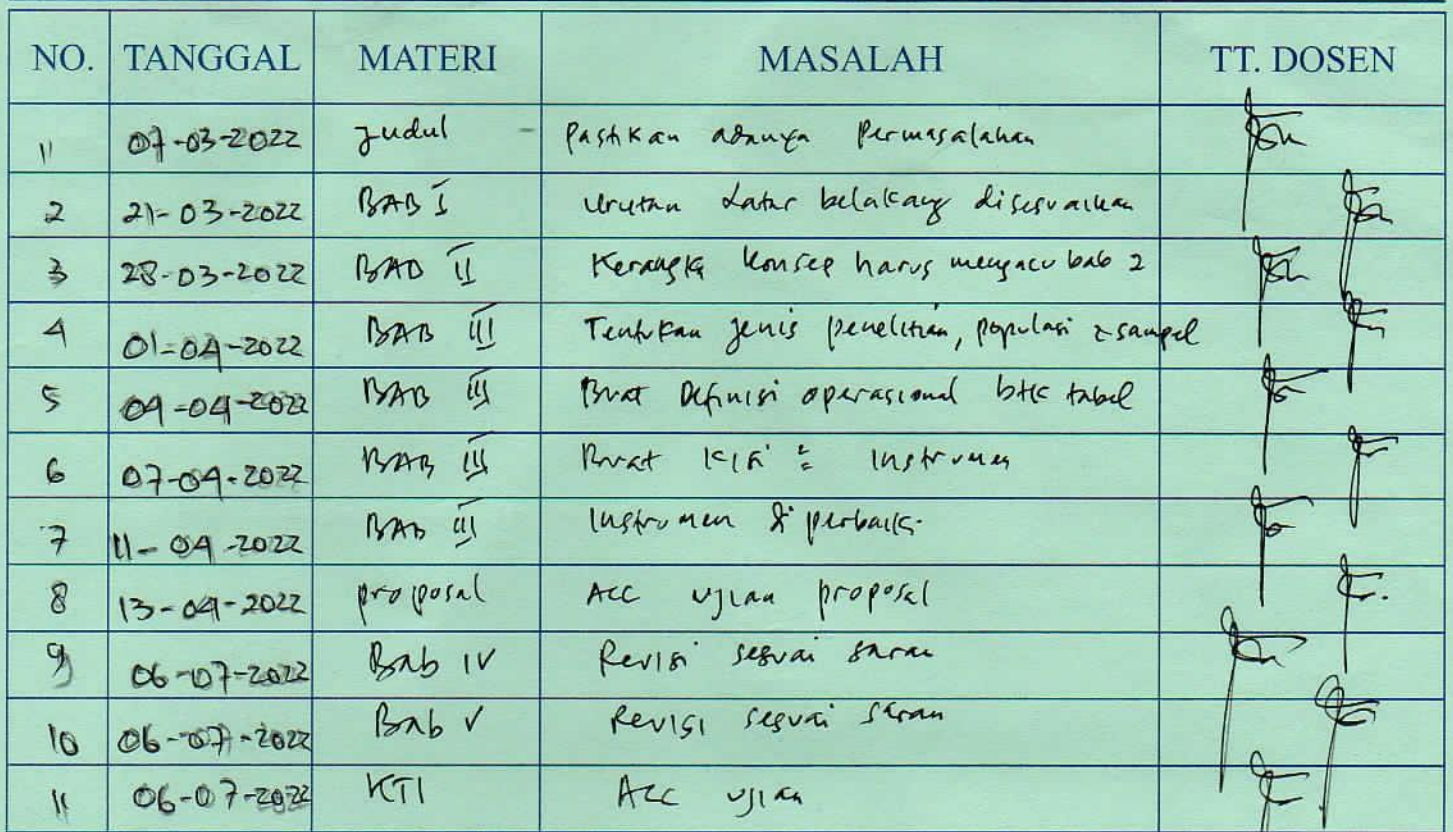 NO. TANGGAL MATERI MASALAH TT. DOSEN
11 07-03-2022 Judul - Pastikan adanya Permasalahan
2 21-03-2022 BAB I Urutan Latar belakang disesuaikan
3 28-03-2022 BAB II Kerangka konsep harus mengacu bab 2
4 01-04-2022 BAB III Tentukan jenis penelitian, populasi & sampel
5 04-04-2022 BAB III Buat Definisi operasional btk tabel
6 07-04-2022 BAB III Buat Instrumen
7 11-04-2022 BAB III Instrumen diperbaiki
8 13-04-2022 proposal ACC ujian proposal
9 06-07-2022 Bab IV Revisi sesuai saran
10 06-07-2022 Bab V Revisi sesuai saran
11 06-07-2022 KTI ACC ujian